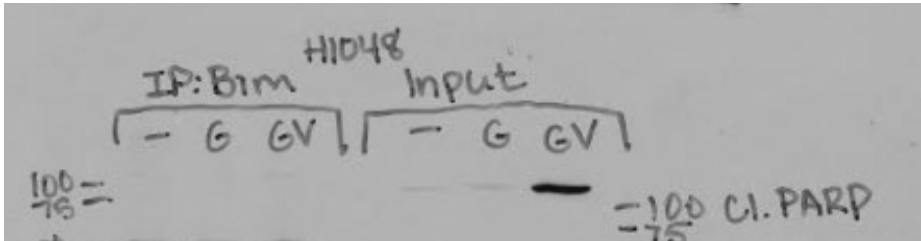 H1048
IP: Bim Input
- G GV - G GV
100 -
75 -
- 100 Cl. PARP
- 75